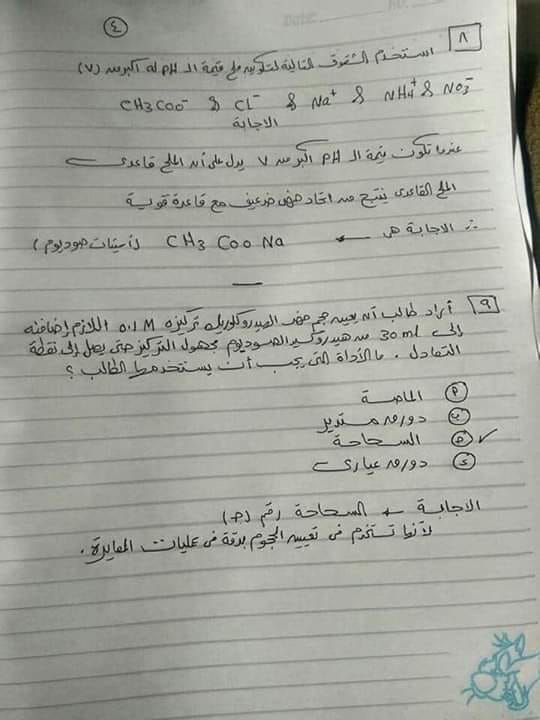 ٤
٨ استخدم الشقوق التالية لتكوين ملح قيمة الـ PH له أكبر من (٧)
CH3COO⁻ & Cl⁻ & Na⁺ & NH4⁺ & NO3⁻
الاجابة
عندما تكون قيمة الـ PH أكبر من ٧ يدل على أن الملح قاعدى
الملح القاعدى ينتج من اتحاد حمض ضعيف مع قاعدة قوية
∴ الاجابة هى ← CH3COONa (أسيتات صوديوم)
٩ أراد طالب أن يعين حجم حمض الهيدروكلوريك تركيزه 0.1 M اللازم إضافته
إلى 30 ml من هيدروكسيد الصوديوم مجهول التركيز حتى يصل إلى نقطة
التعادل. ما الأداة التى يجب أن يستخدمها الطالب؟
أ الماصة
ب دورق مستدير
ج السحاحة ✓
د دورق عيارى
الاجابة ← السحاحة رقم (ج)
لأنها تستخدم فى تعيين الحجوم بدقة فى عمليات المعايرة.